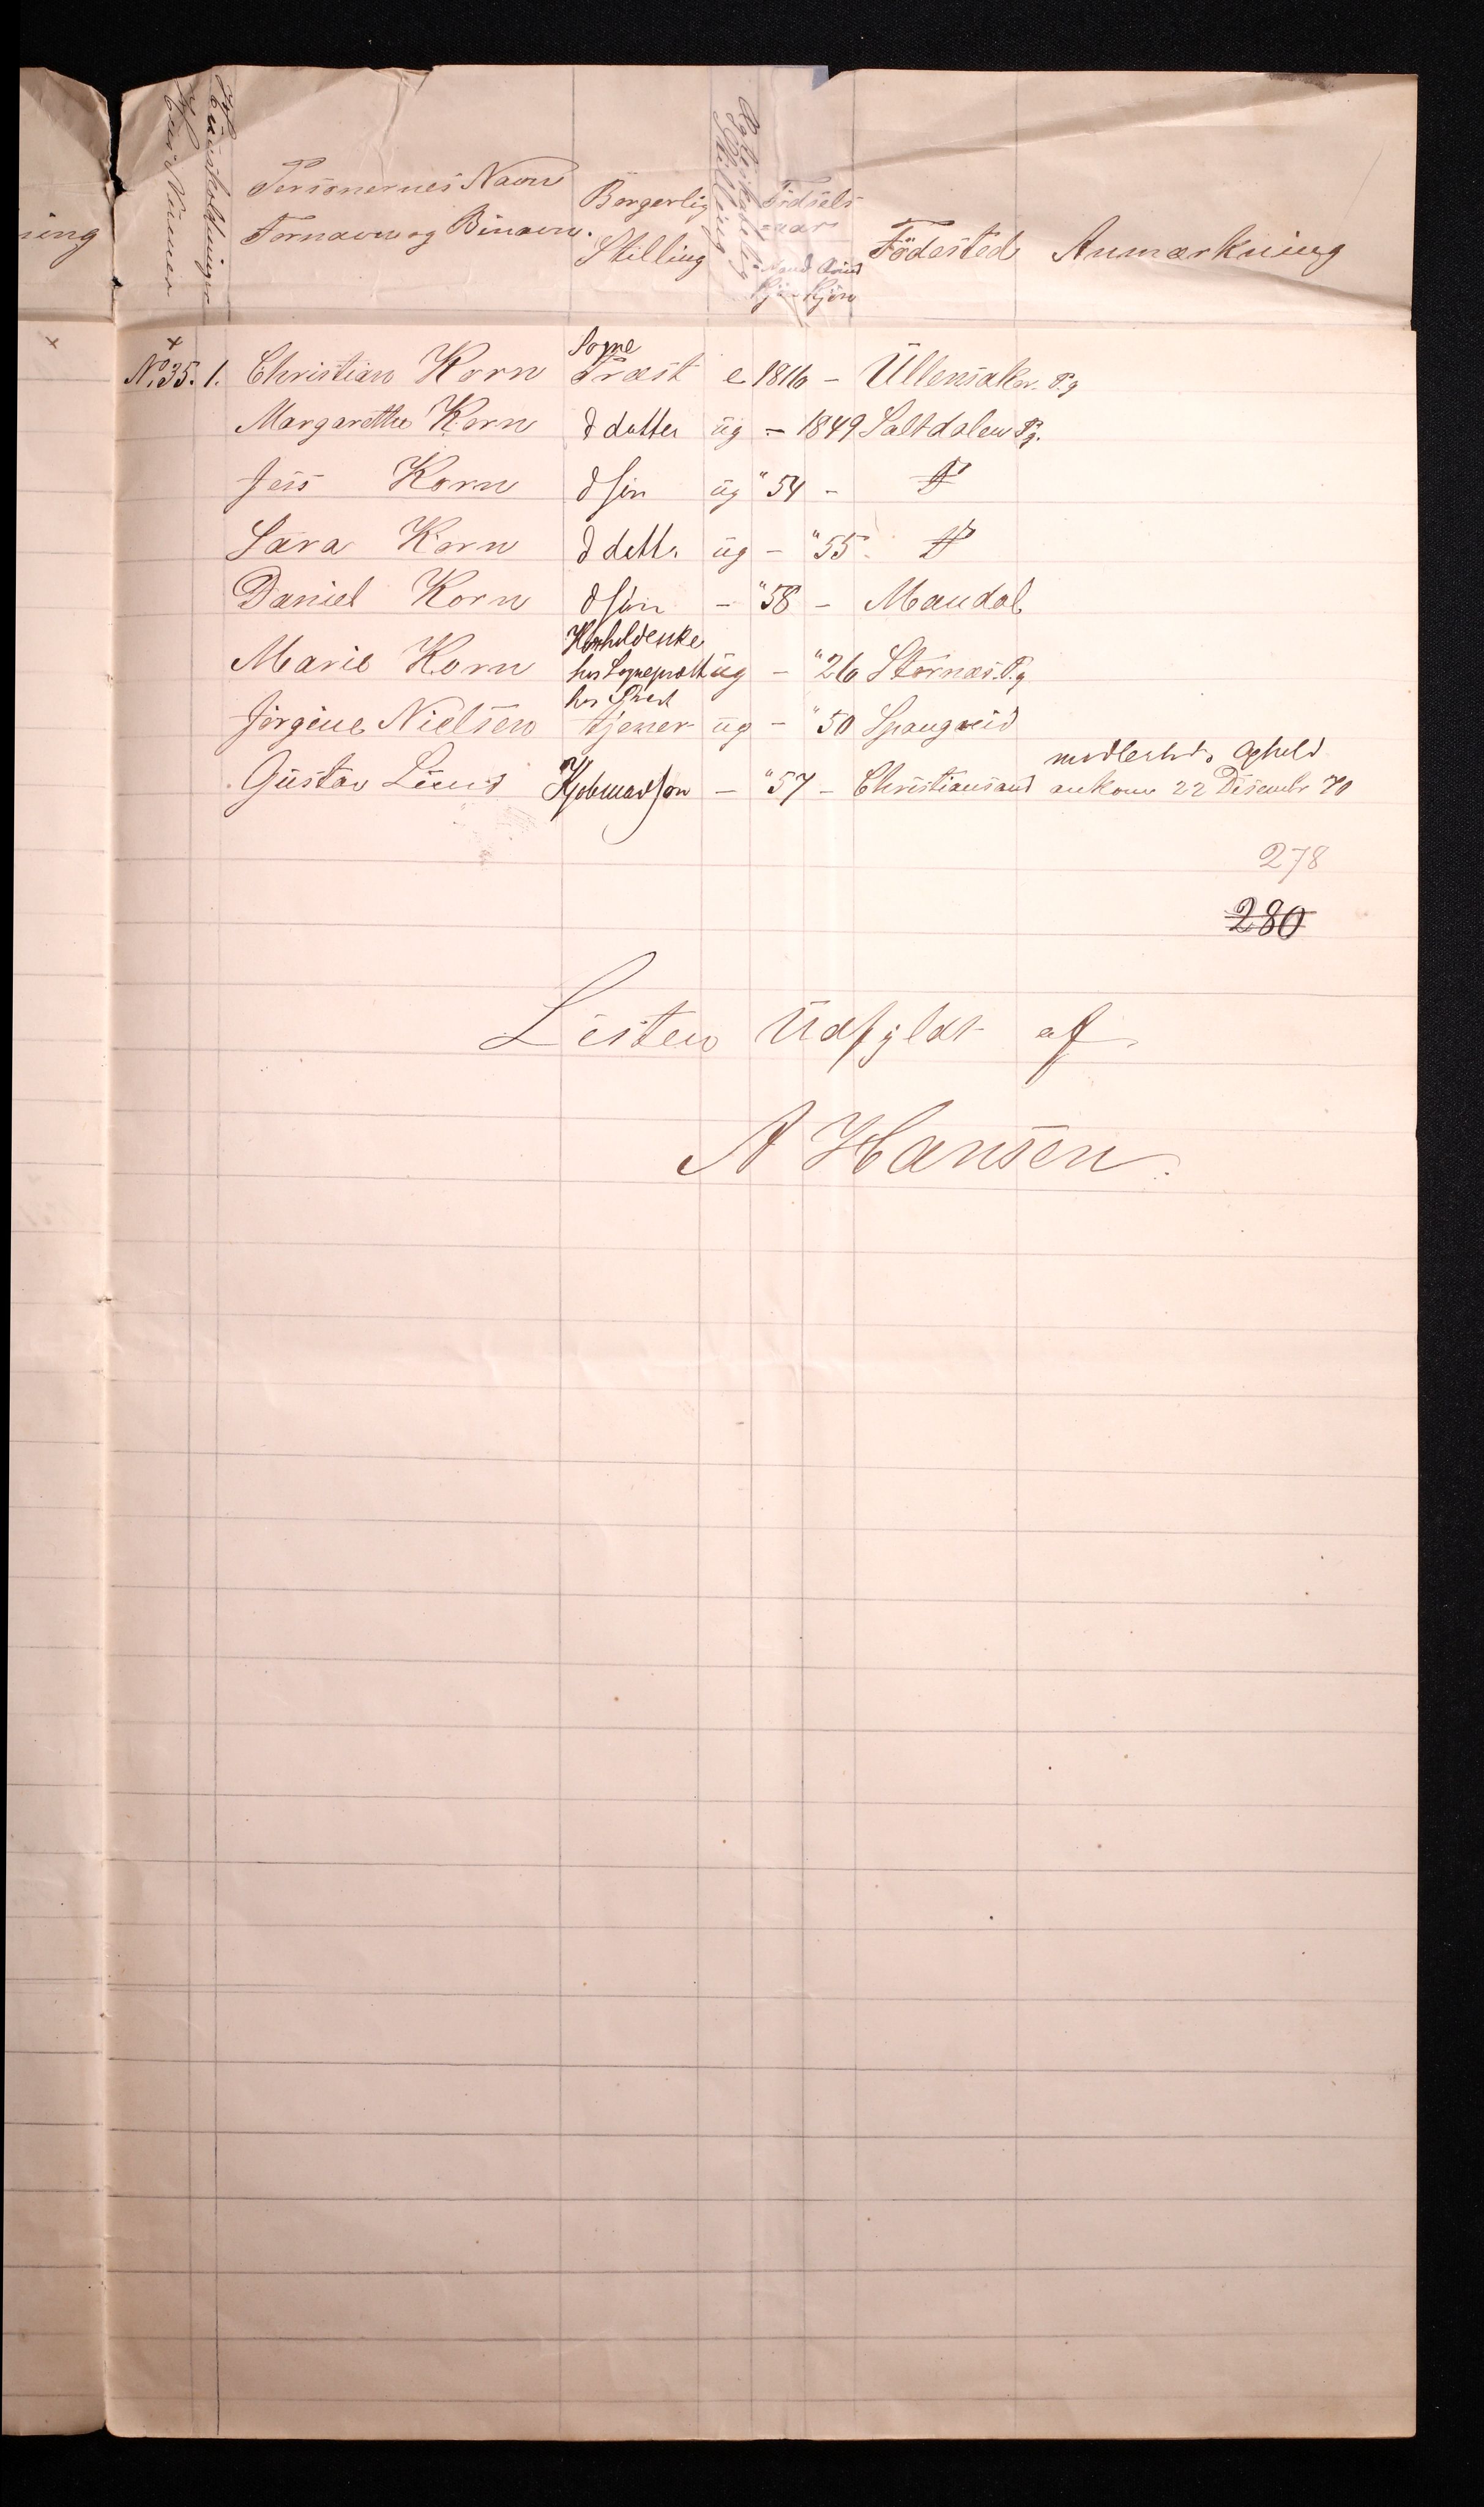 ning
Huusnummer
Huusholdninger
Personernes Navn
Fornavn og Binavn.
Borgerlig
Stilling
Egteskabelig
Stilling
Födsels
aar
Mand Qvind
Kjön Kjön
Födested
Anmærkning
No 35. 1. Christian Korn Sogne Præst e 1816 - Üllensaker. P.g
Margarethe Korn d datter üg - 1849 Saltdalen Pg.
Jess Korn d sön üg " 54 - D
Sara Korn d datt. üg - " 55 D
Daniel Korn d sön - " 58 - Mandal
Marie Korn Husholderske hos Sognepræst üg - " 26 P.g
Jörgine Nielsen hos Præst tjener üg - " 50 Spangreid
Güstav Kjöbmadsön - " 57 - Christiansand midlertid. Ophold
ankom 22 Desembr 70
278
280
Listen Üdfyldt af
A Hansen.